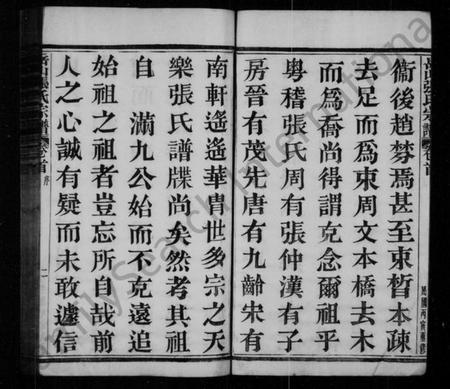 衞後趙棼焉甚至束晳本疎
去足而爲束周文本橋去木
而爲喬尚得謂克念爾祖乎
粤稽張氏周有張仲漢有子
房晉有茂先唐有九齡宋有
南軒遙遙華胄世多宗之天
樂張氏譜牒尚矣然考其祖
自 滿九公始而不克遠追
始祖之祖者豈忘所自哉前
人之心誠有疑而未敢遽信
岳山張氏宗譜 卷首
岳山張氏宗譜 卷首 序 二
FamilySearch International